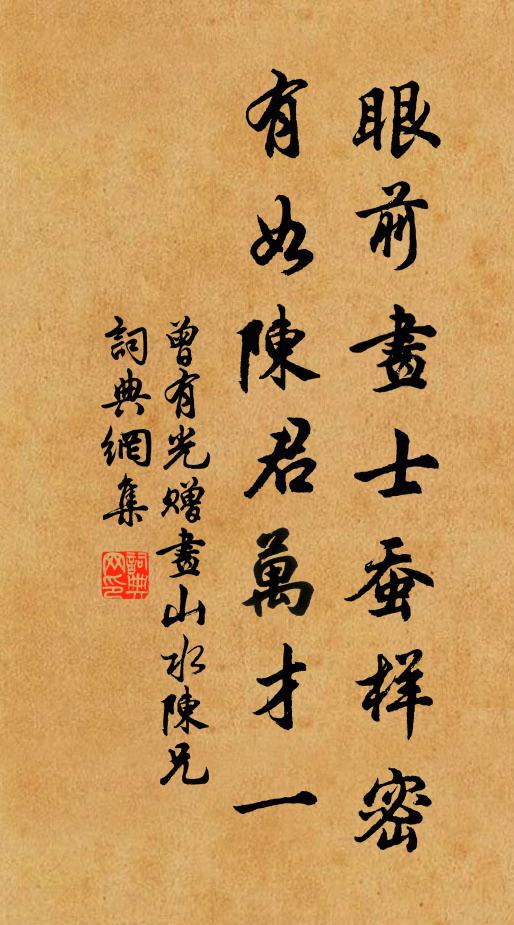 眼前畫士蚕样密
有如陳君萬才一
曾有光赠畫山水陳兄
詞典網集
詞典
网印